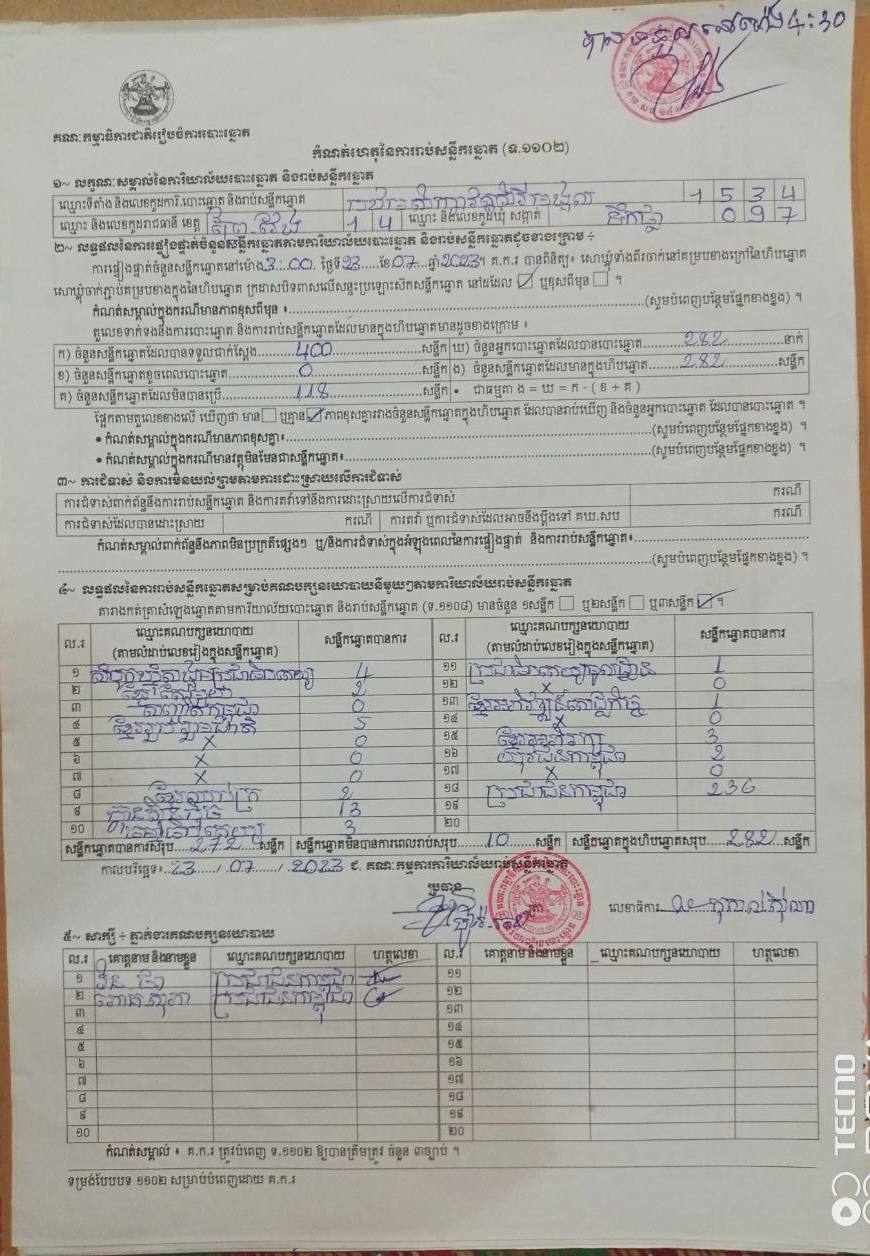 បានទទួលនៅម៉ោង 4:30
គណៈកម្មាធិការជាតិរៀបចំការបោះឆ្នោត
កំណត់ហេតុនៃការរាប់សន្លឹកឆ្នោត (ទ.១១០២)
១~ លក្ខណៈសម្គាល់នៃការិយាល័យបោះឆ្នោត និងរាប់សន្លឹកឆ្នោត
ឈ្មោះទីតាំង និងលេខកូដការិ.បោះឆ្នោត និងរាប់សន្លឹកឆ្នោត 1 5 3 4
ឈ្មោះ និងលេខកូដរាជធានី ខេត្ត ព្រៃវែង 1 4 ឈ្មោះ និងលេខកូដឃុំ សង្កាត់ 0 9 7
២~ លទ្ធផលនៃការផ្ទៀងផ្ទាត់ចំនួនសន្លឹកឆ្នោតតាមការិយាល័យបោះឆ្នោត និងរាប់សន្លឹកឆ្នោតដូចខាងក្រោម ៖
ការផ្ទៀងផ្ទាត់ចំនួនសន្លឹកឆ្នោតនៅម៉ោង 3:00 ថ្ងៃទី 23 ខែ 07 ឆ្នាំ 2023។ គ.ក.រ បានពិនិត្យ៖ សោឃ្មុំទាំងពីរចាក់នៅគម្របខាងក្រៅនៃហិបឆ្នោត
សោឃ្មុំចាក់ភ្ជាប់គម្របខាងក្នុងនៃហិបឆ្នោត ក្រដាសបិទពាសលើសន្ទះប្រឡោះស៊កសន្លឹកឆ្នោត នៅដដែល ☑ ឬខុសពីមុន ☐ ។
កំណត់សម្គាល់ក្នុងករណីមានភាពខុសពីមុន ៖ (សូមបំពេញបន្ថែមផ្នែកខាងខ្នង) ។
តួលេខទាក់ទងនឹងការបោះឆ្នោត និងការរាប់សន្លឹកឆ្នោតដែលមានក្នុងហិបឆ្នោតមានដូចខាងក្រោម ៖
ក) ចំនួនសន្លឹកឆ្នោតដែលបានទទួលជាក់ស្តែង 400 សន្លឹក ឃ) ចំនួនអ្នកបោះឆ្នោតដែលបានបោះឆ្នោត 282 នាក់
ខ) ចំនួនសន្លឹកឆ្នោតខូចពេលបោះឆ្នោត 0 សន្លឹក ង) ចំនួនសន្លឹកឆ្នោតដែលមានក្នុងហិបឆ្នោត 282 សន្លឹក
គ) ចំនួនសន្លឹកឆ្នោតដែលមិនបានប្រើ 118 សន្លឹក • ជាធម្មតា ង = ឃ = ក - ( ខ + គ )
ផ្អែកតាមតួលេខខាងលើ ឃើញថា មាន ☐ ឬគ្មាន ☑ ភាពខុសគ្នារវាងចំនួនសន្លឹកឆ្នោតក្នុងហិបឆ្នោត ដែលបានរាប់ឃើញ និងចំនួនអ្នកបោះឆ្នោត ដែលបានបោះឆ្នោត ។
• កំណត់សម្គាល់ក្នុងករណីមានភាពខុសគ្នា៖ (សូមបំពេញបន្ថែមផ្នែកខាងខ្នង) ។
• កំណត់សម្គាល់ក្នុងករណីមានវត្ថុមិនមែនជាសន្លឹកឆ្នោត៖ (សូមបំពេញបន្ថែមផ្នែកខាងខ្នង) ។
៣~ ការជំទាស់ និងការមិនយល់ព្រមតាមការដោះស្រាយលើការជំទាស់
ការជំទាស់ពាក់ព័ន្ធនឹងការរាប់សន្លឹកឆ្នោត និងការតវ៉ាទៅនឹងការដោះស្រាយលើការជំទាស់ ករណី
ការជំទាស់ដែលបានដោះស្រាយ ករណី ការតវ៉ា ឬការជំទាស់ដែលអាចនឹងប្តឹងទៅ គឃ.សប ករណី
កំណត់សម្គាល់ពាក់ព័ន្ធនឹងភាពមិនប្រក្រតីផ្សេងៗ ឬ/និងការជំទាស់ក្នុងអំឡុងពេលនៃការផ្ទៀងផ្ទាត់ និងការរាប់សន្លឹកឆ្នោត៖
(សូមបំពេញបន្ថែមផ្នែកខាងខ្នង) ។
៤~ លទ្ធផលនៃការរាប់សន្លឹកឆ្នោតសម្រាប់គណបក្សនយោបាយនីមួយៗតាមការិយាល័យរាប់សន្លឹកឆ្នោត
តារាងកត់ត្រាសំឡេងឆ្នោតតាមការិយាល័យបោះឆ្នោត និងរាប់សន្លឹកឆ្នោត (ទ.១១០៨) មានចំនួន ១សន្លឹក ☐ ឬ២សន្លឹក ☐ ឬ៣សន្លឹក ☑ ។
ល.រ ឈ្មោះគណបក្សនយោបាយ (តាមលំដាប់លេខរៀងក្នុងសន្លឹកឆ្នោត) សន្លឹកឆ្នោតបានការ ល.រ ឈ្មោះគណបក្សនយោបាយ (តាមលំដាប់លេខរៀងក្នុងសន្លឹកឆ្នោត) សន្លឹកឆ្នោតបានការ
១ 4 ១១ 1
២ 2 ១២ X 0
៣ 0 ១៣ 1
៤ ខ្មែររួបរួមជាតិ 5 ១៤ X 0
៥ X 0 ១៥ ខ្មែរអភិរក្ស 3
៦ X 0 ១៦ យុវជនកម្ពុជា 2
៧ X 0 ១៧ X 0
៨ ខ្មែរឈប់ក្រ 2 ១៨ ប្រជាជនកម្ពុជា 236
៩ ហ្វ៊ុនស៊ិនប៉ិច 13 ១៩
១០ 3 ២០
សន្លឹកឆ្នោតបានការសរុប 272 សន្លឹក សន្លឹកឆ្នោតមិនបានការពេលរាប់សរុប 10 សន្លឹក សន្លឹកឆ្នោតក្នុងហិបឆ្នោតសរុប 282 សន្លឹក
កាលបរិច្ឆេទ៖ 23 / 07 / 2023 ជ. គណៈកម្មការការិយាល័យរាប់សន្លឹកឆ្នោត
ប្រធាន
លេខាធិការ
៥~ សាក្សី ៖ ភ្នាក់ងារគណបក្សនយោបាយ
ល.រ គោត្តនាម និងនាមខ្លួន ឈ្មោះគណបក្សនយោបាយ ហត្ថលេខា ល.រ គោត្តនាម និងនាមខ្លួន ឈ្មោះគណបក្សនយោបាយ ហត្ថលេខា
១ ប្រជាជនកម្ពុជា ១១
២ ប្រជាជនកម្ពុជា ១២
៣ ១៣
៤ ១៤
៥ ១៥
៦ ១៦
៧ ១៧
៨ ១៨
៩ ១៩
១០ ២០
កំណត់សម្គាល់ ៖ គ.ក.រ ត្រូវបំពេញ ទ.១១០២ ឱ្យបានត្រឹមត្រូវ ចំនួន ៣ច្បាប់ ។
ទម្រង់បែបបទ ១១០២ សម្រាប់បំពេញដោយ គ.ក.រ
TECNO